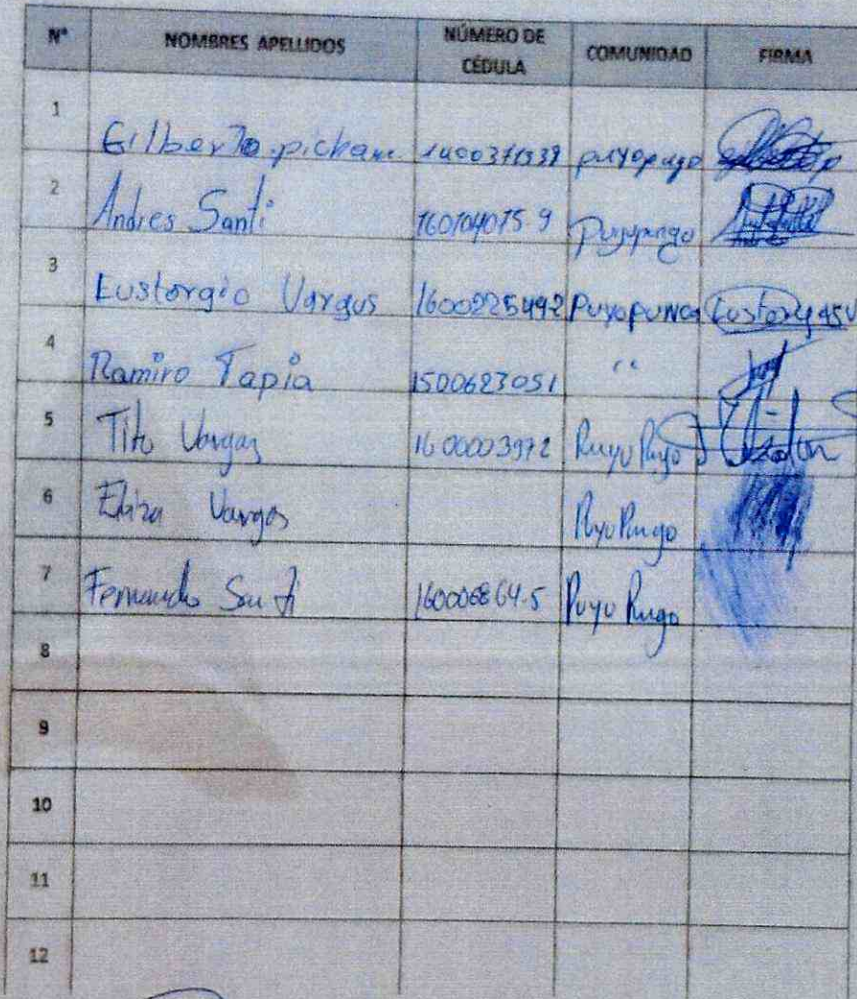 N° NOMBRES APELLIDOS NÚMERO DE CÉDULA COMUNIDAD FIRMA
1 Gilberto picham 1400371939 puyopugo
2 Andres Santi 160104015 9 Puyupungo
3 Eustorgio Vargus 1600225492 Puyopungo
4 Ramiro Tapia 1500623051 "
5 Tito Vargas 1600003972 Puyu Pugo
6 Eliza Vargas Puyu Pungo
7 Fernando Santi 160006864-5 Puyu Pungo
8
9
10
11
12